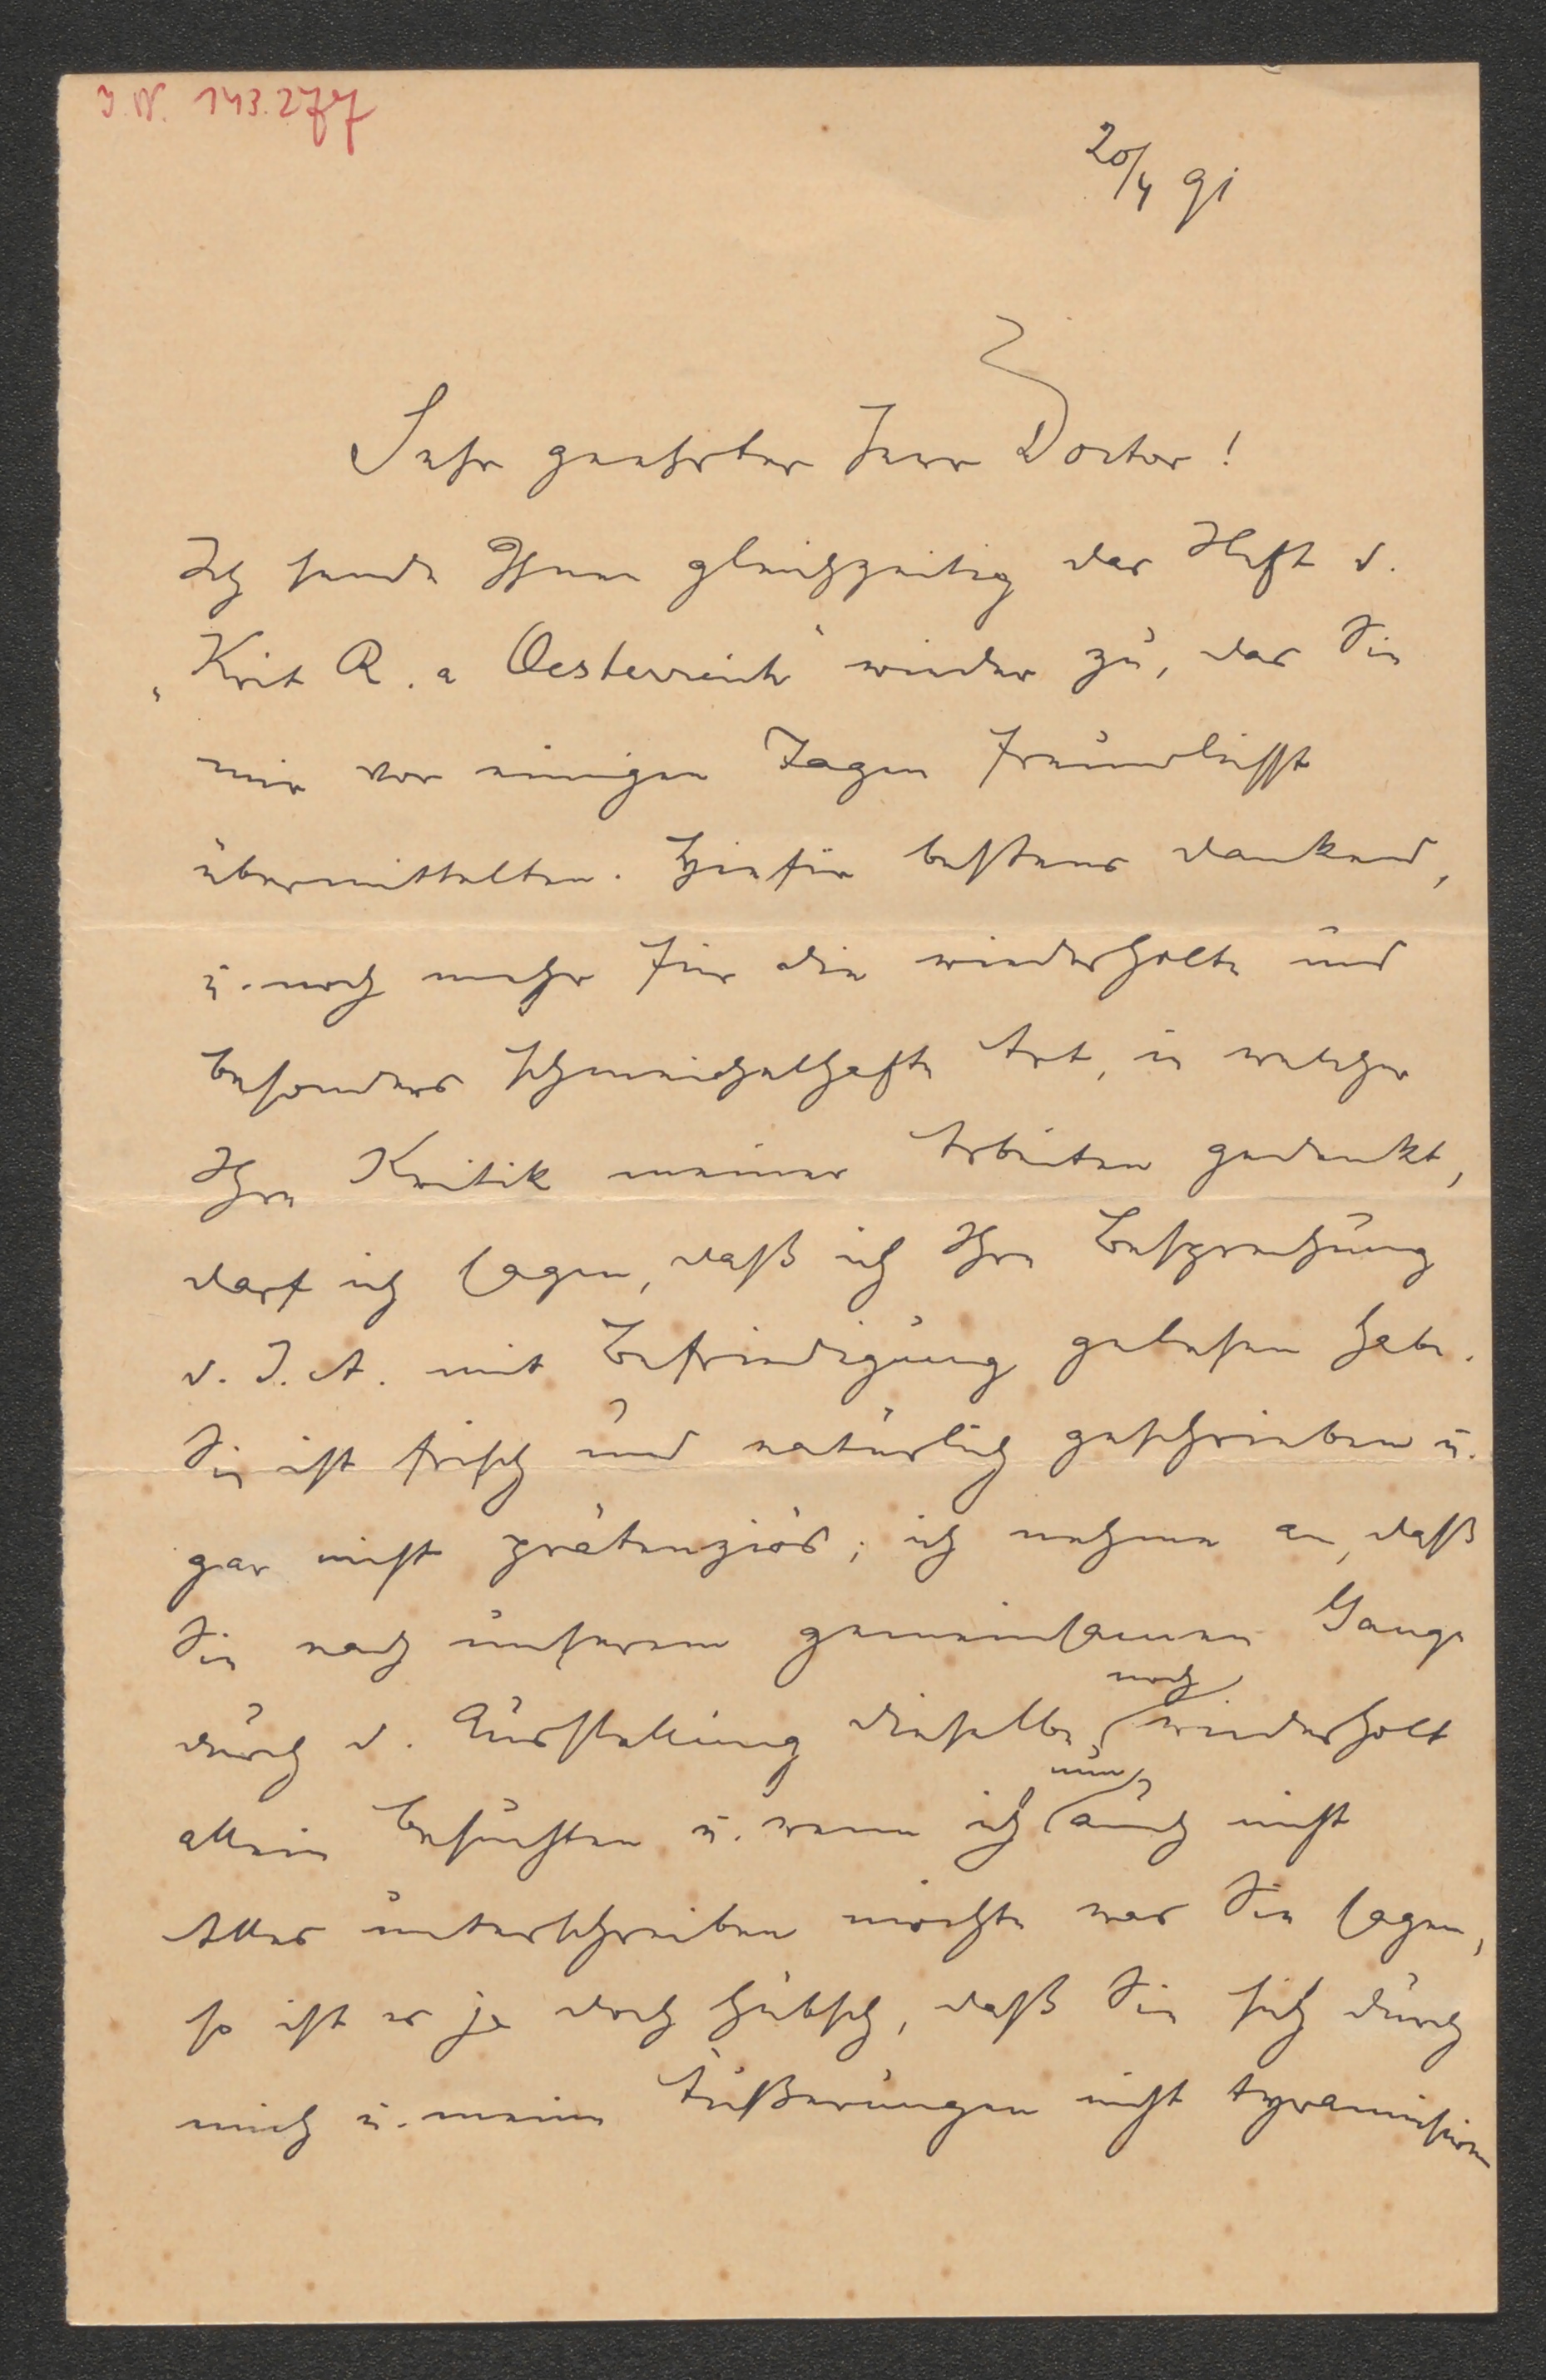 J. N. 143.277
20/4 91
Sehr geehrter Herr Doctor!
Ich sende Ihnen gleichzeitig das Heft d.
„Krit R. a Oesterreich" wieder zu, das Sie
mir vor einigen Tagen freundlichst
übermittelten. Hiefür bestens dankend,
u. noch mehr für die wiederholte und
besonders schmeichelhafte Art, in welcher
Ihre Kritik meiner Arbeiten gedenkt,
darf ich sagen, daß ich Ihre Besprechung
d. J. A. mit Befriedigung gelesen habe.
Sie ist frisch und natürlich geschrieben u.
gar nicht prätenziös; ich nehme an, daß
Sie nach unserem gemeinsamen Gange
noch
durch d. Ausstellung dieselbe wiederholt
nun
allein besuchten u. wenn ich auch nicht
Alles unterschreiben möchte was Sie sagen,
so ist es ja doch hübsch, daß Sie sich durch
mich u. meine Äußerungen nicht tyrannisiren